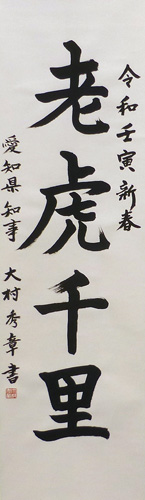 令和壬寅新春
老虎千里
愛知県知事
大村秀章書